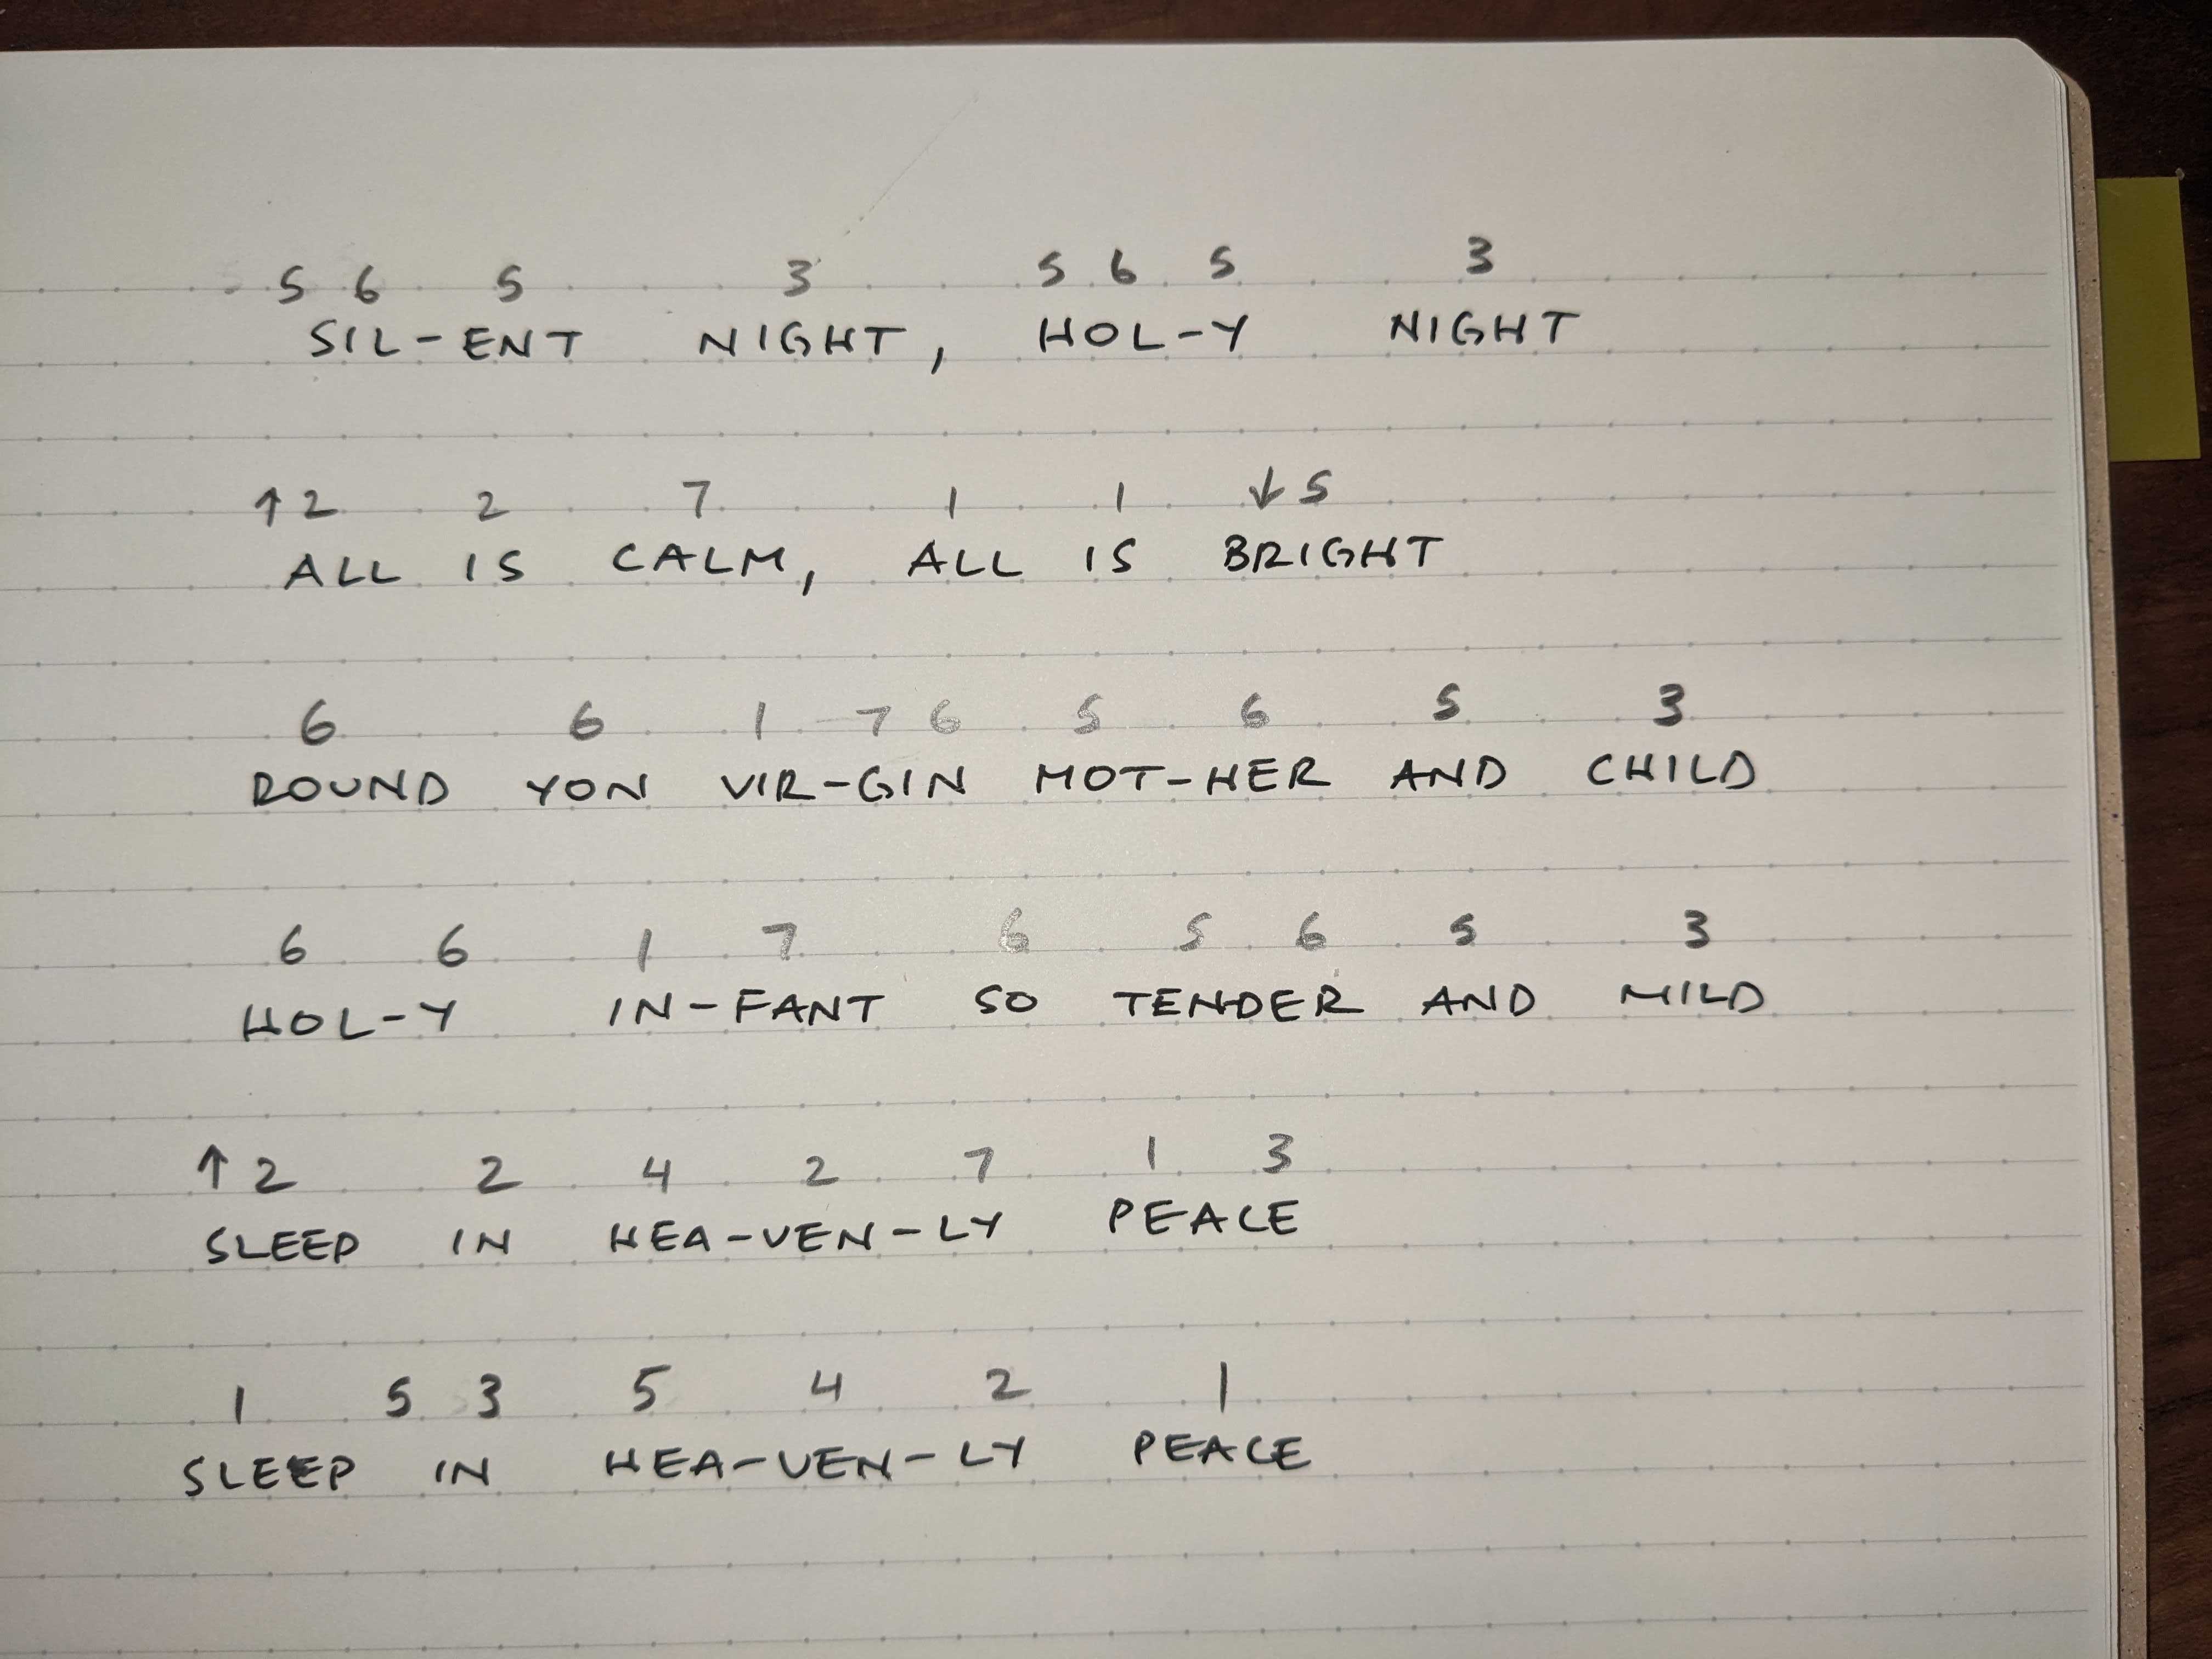 5 6 5 3 5 6 5 3
SIL-ENT NIGHT, HOL-Y NIGHT
↑2 2 7 1 1 ↓5
ALL IS CALM, ALL IS BRIGHT
6 6 1 7 6 5 6 5 3
ROUND YON VIR-GIN MOT-HER AND CHILD
6 6 1 7 6 5 6 5 3
HOL-Y IN-FANT SO TENDER AND MILD
↑2 2 4 2 7 1 3
SLEEP IN HEA-VEN-LY PEACE
1 5 3 5 4 2 1
SLEEP IN HEA-VEN-LY PEACE